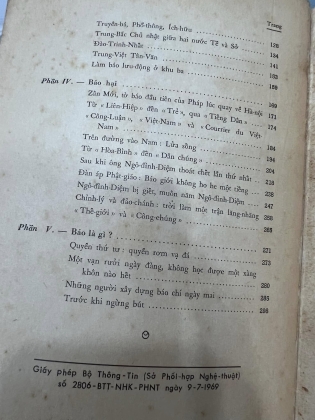 Trang
Truyền-bá, Phổ-thông, Ích-hữu 128
Trung-Bắc Chủ nhật giữa hai nước Tề và Sở 134
Đào-Trinh-Nhất 141
Trung-Việt Tân-Văn 163
Làm báo lưu-động ở khu ba 189
Phần IV. — Báo hại
Zân Mới, tờ báo đầu tiên của Pháp lúc quay về Hà-nội 171
Từ «Liên-Hiệp» đến «Trẻ», qua «Tiếng Dân»
«Công-Luận», «Việt-Nam» và «Courrier du Việt
Nam»
Trên đường vào Nam : Lửa sống 194
Từ «Hòa-Bình» đến «Dân chúng» 204
Sau khi ông Ngô-đình-Diệm thoát chết lần thứ nhất 218
Đàn áp Phật-giáo : Báo giới không ho he một tiếng 238
Ngô-đình-Diệm bị giết, muôn năm Ngô-đình-Diệm 247
Chính-lý và đảo-chánh : trời làm một trận lăng-nhăng
«Thế-giới» và «Công-chúng»
Phần V. — Báo là gì ? 271
Quyền thứ tư : quyền rơm vạ đá 273
Một vạn rưởi ngày đàng, không học được một sàng
khôn nào hết 280
Những người xây dựng báo chí ngày mai 285
Trước khi ngừng bút
Giấy phép Bộ Thông-Tin (Sở Phối-hợp Nghệ-thuật)
số 2806-BTT-NHK-PHNT ngày 9-7-1969